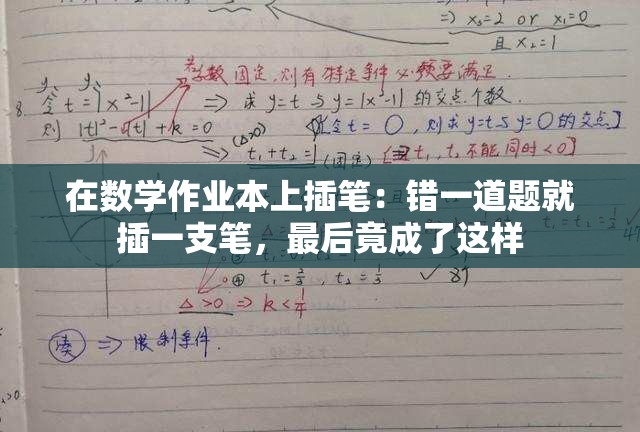 => x₃=2 or x₁=0
且 x₂=1
若参数固定,则有特定条件必须要满足.
8. 令 t=|x²-1| => 求 y=t 与 y=|x²-1| 的交点个数.
则 |t|²-|t|+k=0 (Δ>0) [令t=0,则求y=t与y=0的交点]
=> t₁+t₂=1(固定) [=>t₁,t₂不能同时<0]
在数学作业本上插笔:错一道题就
插一支笔,最后竟成了这样
④ t₁=2/3, t₂=1/3 ✓ 8个
Δ>0 => k<1/4
凑 => 限制条件.
>0